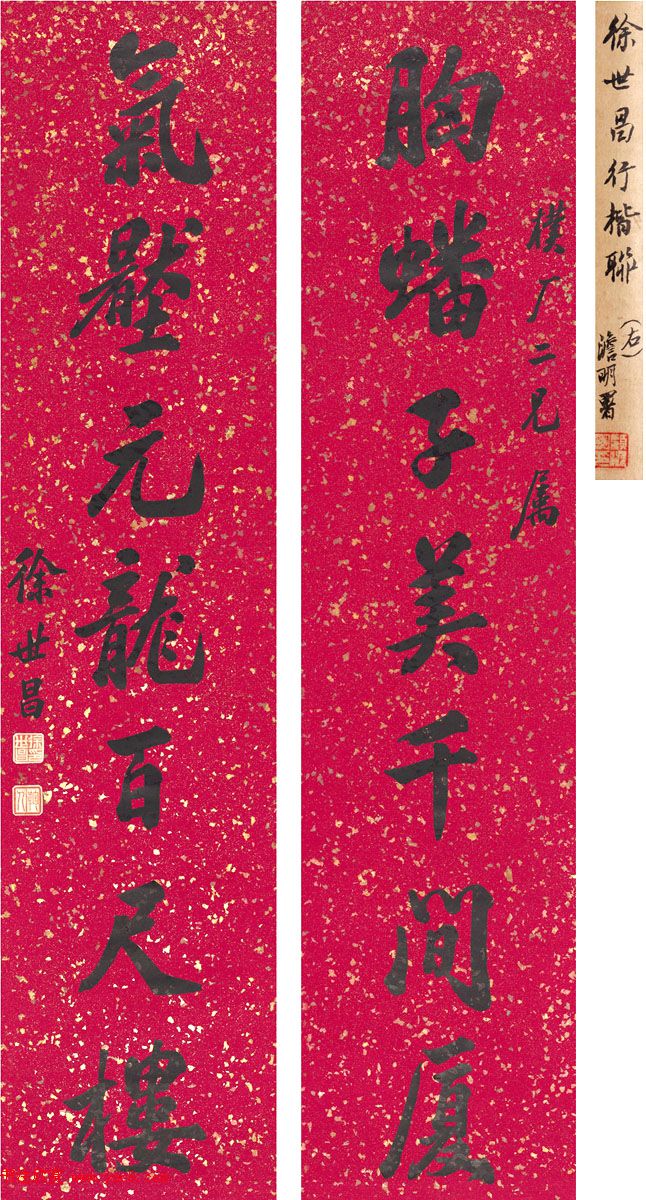 徐世昌行楷聯
（右）
澹明署
樸厂二兄属
胸蟠子美千間厦
氣壓元龍百尺樓
徐世昌